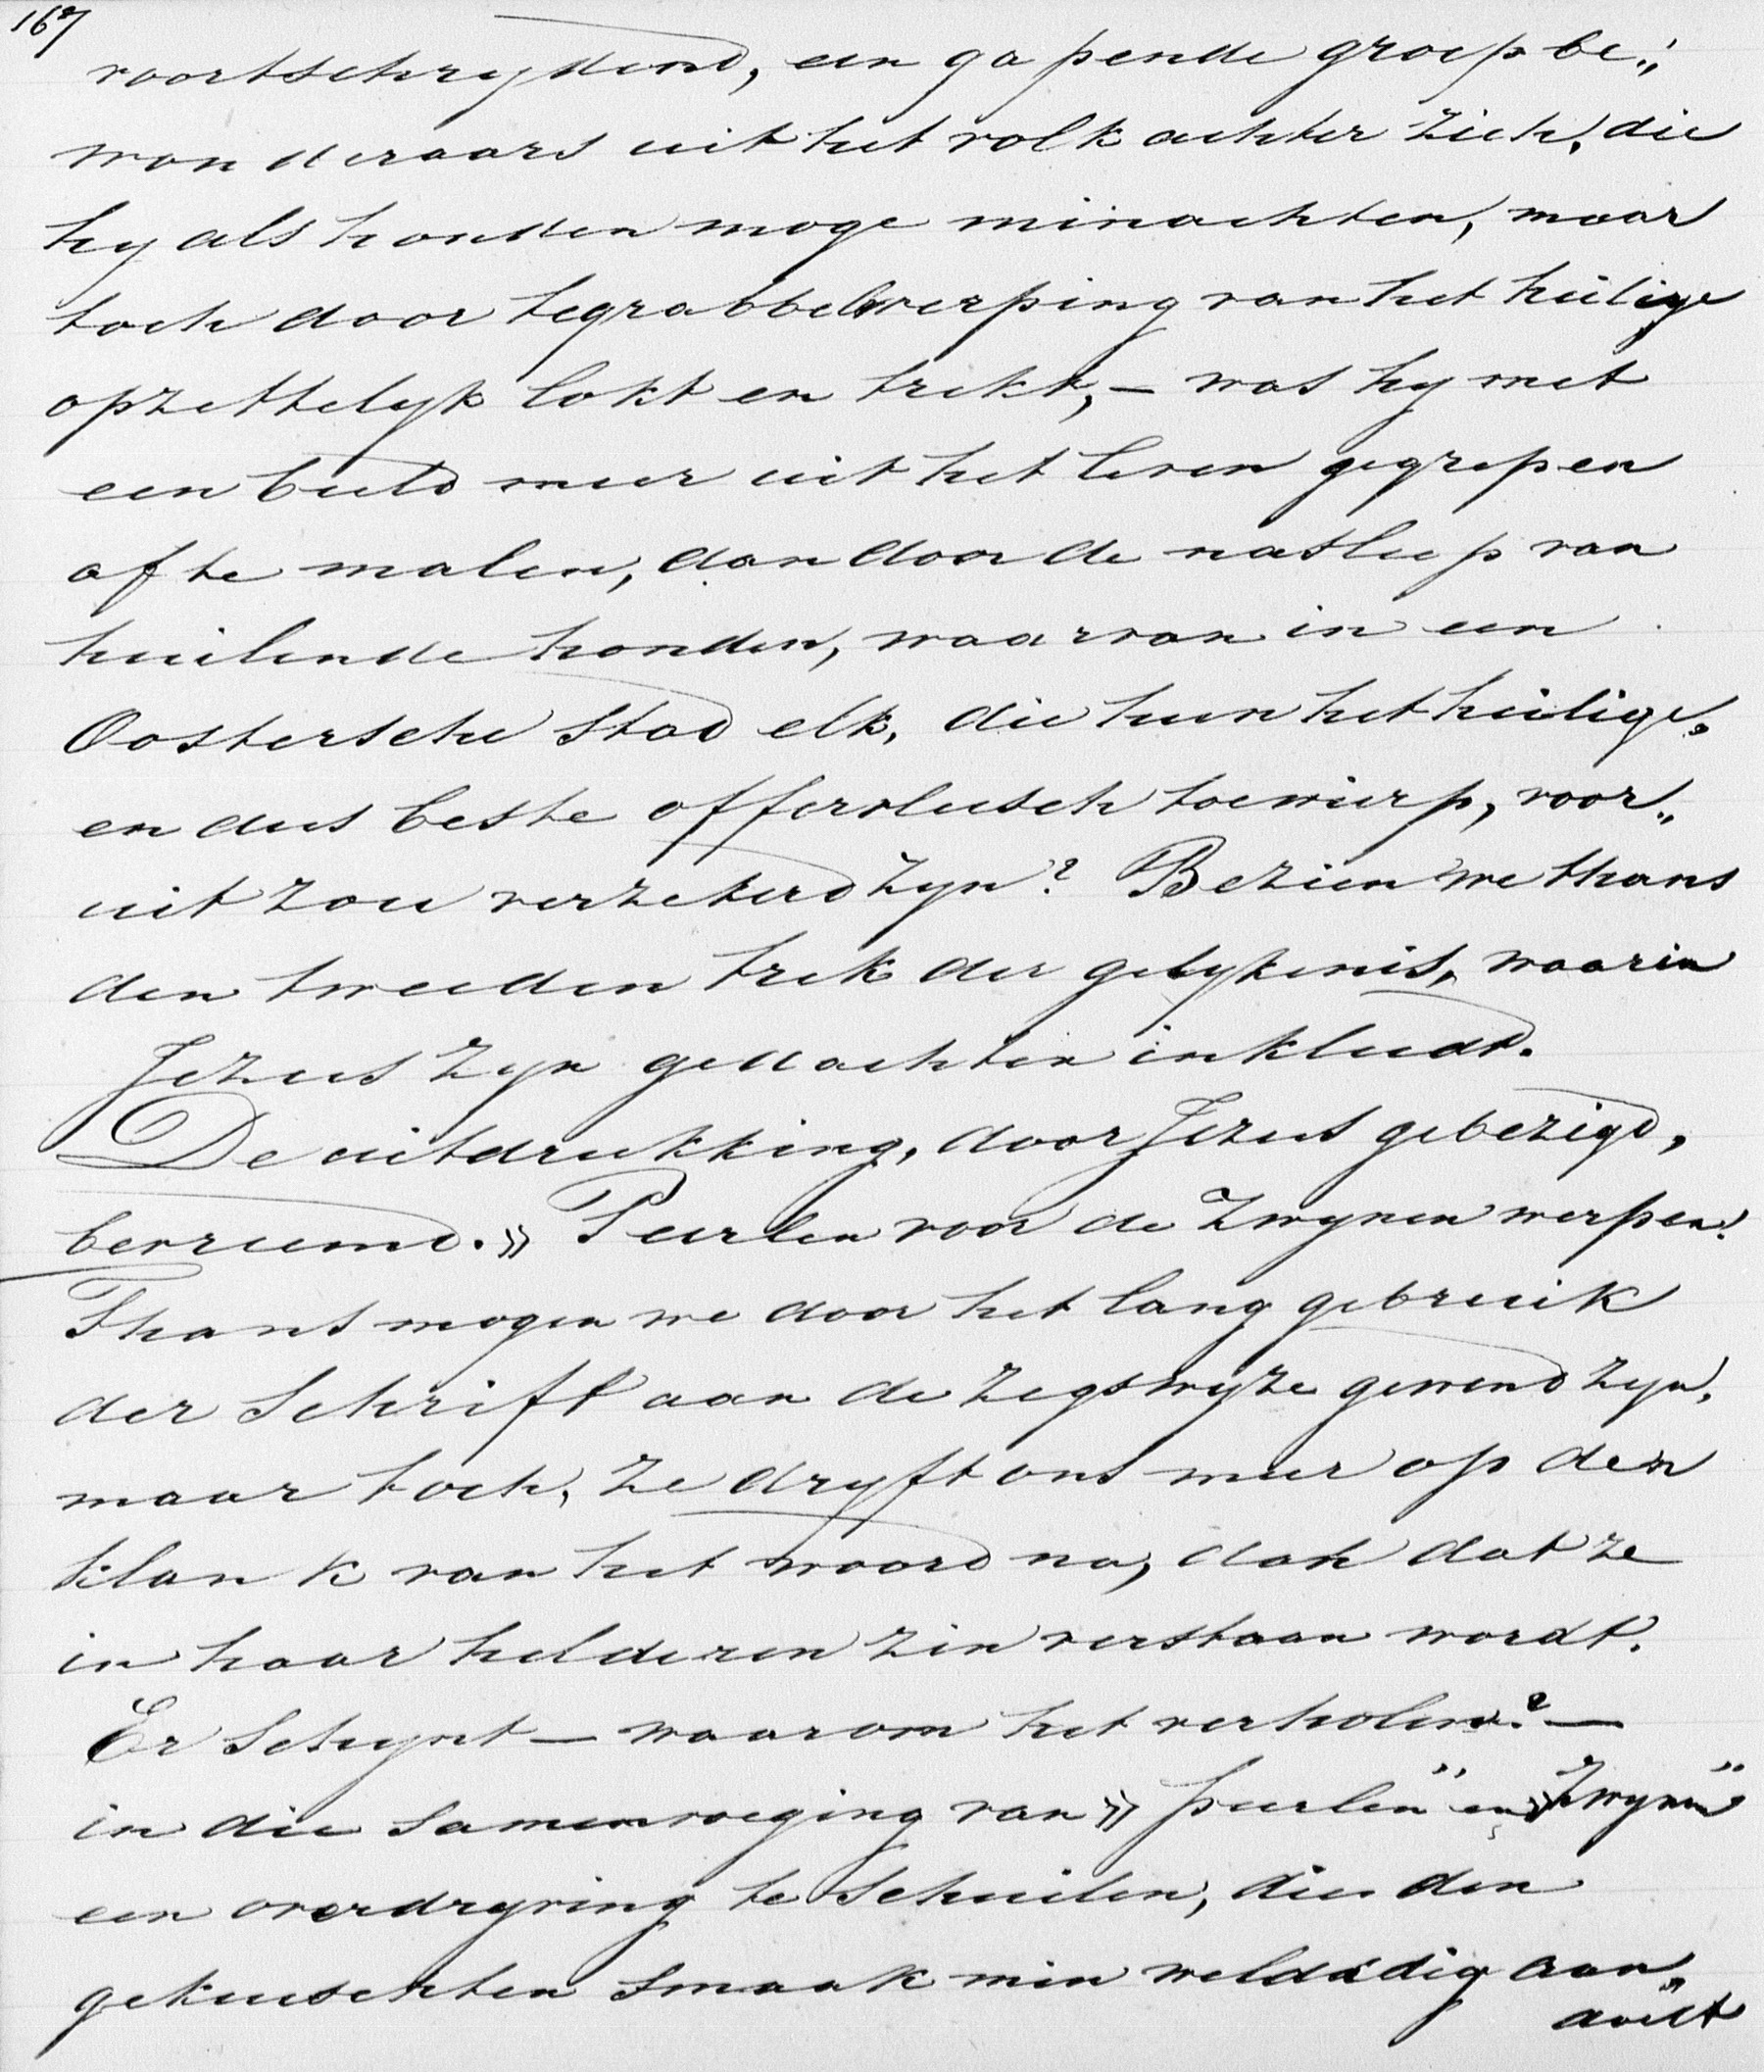 167
voortschrydend, een gapende groep be„
wonderaars uit het volk achter zich, die
hy als honden moge minachten, maar
toch door tegrabbelwerping van het heilige
opzettelyk lokt en trekt, — was hy met
een beeld meer uit het leven gegrepen
af te malen, dan door de nasleep van
huilende honden, waarvan in een
Oostersche stad elk, die hun het heilige,
en dus beste offervleesch toewierp, voor„
uit zou verzekerd zyn? Bezien we thans
den tweeden trek der gelykenis, waarin
Jezus zyn gedachten inkleedt.
De uitdrukking, door Jezus gebezigd,
bevreemd. » Peerlen voor de Zwynen werpen!
Thans mogen we door het lang gebruik
der Schrift aan de zegswyze gewend zyn,
maar toch, ze dryft ons meer op den
klank van het woord na, dan dat ze
in haar helderen zin verstaan wordt.
Er schynt — waarom het verholen? —
in die samenvoeging van » peerlen" en » Zwynen"
een overdryving te schuilen, die den
gekuischten smaak min weldadig aan„
doet